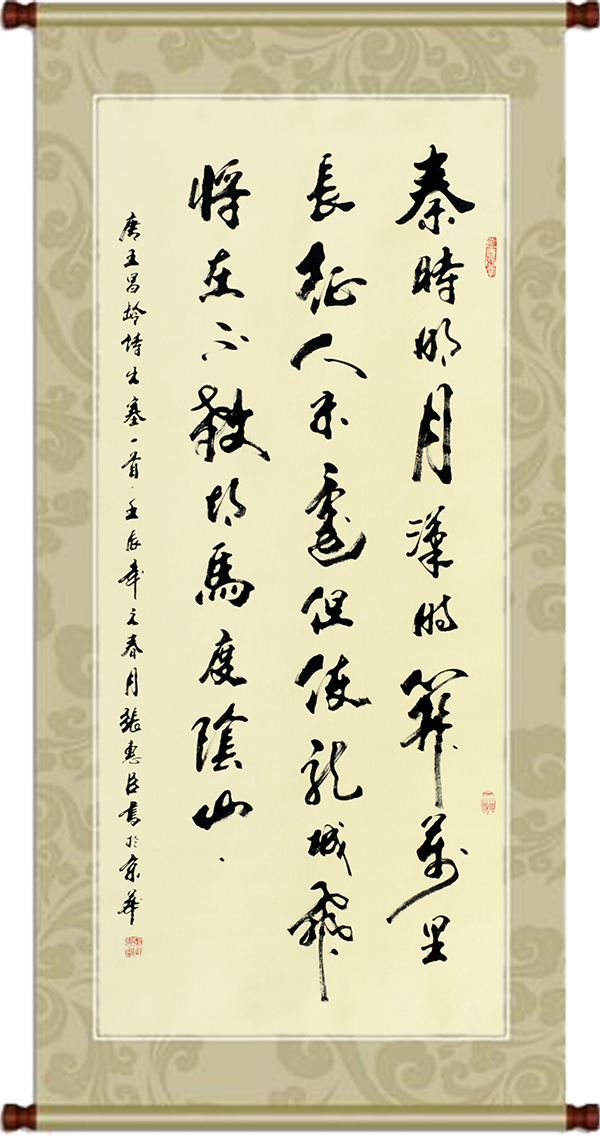 秦時明月漢時關萬里
長征人未還但使龍城飛
將在不教胡馬度陰山
唐王昌齡詩出塞一首 壬辰年之春月張惠臣書於京華